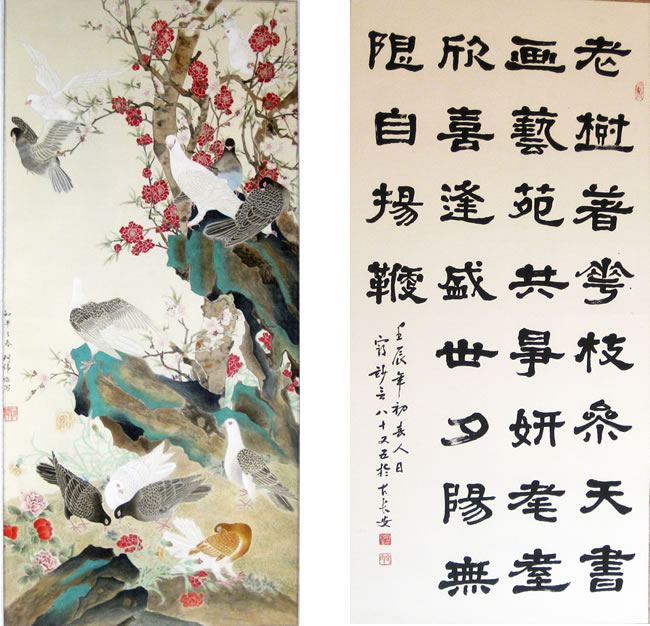 老樹著花枝叅天書
画藝苑共爭妍耄耋
欣喜逢盛世夕陽無
限自揚鞭
壬辰年初春人日
八十又五於古長安
和平之春